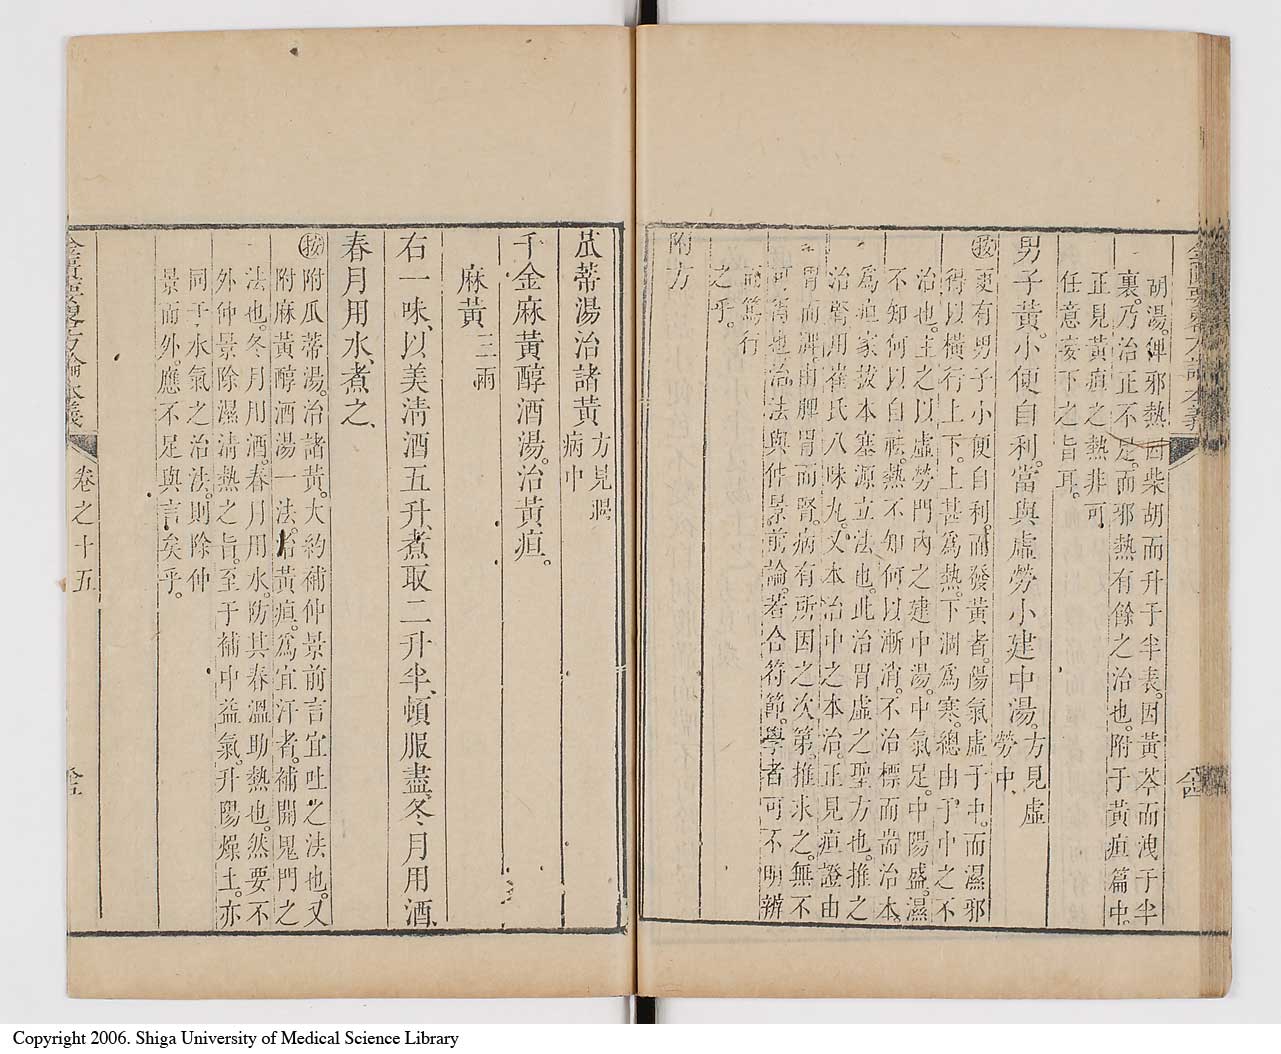 胡湯。俾邪熱因柴胡而升于半表。因黃芩而洩于半
裏。乃治正不足。而邪熱有餘之治也。附于黃疸篇中。
正見黃疸之熱非可
任意妄下之旨耳。
男子黃。小便自利。當與虛勞小建中湯。方見虛勞中
按更有男子小便自利。而發黃者。陽氣虛于中。而濕邪
得以橫行上下。上甚爲熱。下洞爲寒。總由于中之不
治也。主之以虛勞門內之建中湯。中氣足。中陽盛。濕
不知何以自祛。熱不知何以漸消。不治標而耑治本。
爲疸家拔本塞源立法也。此治胃虛之聖方也。推之
治腎用崔氏八味丸。又本治中之本治。正見疸證由
胃而脾。由脾胃而腎。病有所因之次第。推求之。無不
可得也。治法與仲景前論。若合符節。學者可不明辨
而篤行
之乎。
附方
瓜蒂湯治諸黃方見暍病中
千金麻黃醇酒湯。治黃疸。
麻黃三兩
右一味、以美清酒五升、煮取二升半、頓服盡、冬月用酒、
春月用水、煮之、
按附瓜蒂湯。治諸黃。大約補仲景前言宜吐之法也。又
附麻黃醇酒湯一法。治黃疸。爲宜汗者。補開鬼門之
法也。冬月用酒。春月用水。防其春溫助熱也。然要不
外仲景除濕清熱之旨。至于補中益氣。升陽燥土。亦
同于水氣之治法。則除仲
景而外應不足與言矣乎。
卷之十五
Copyright 2006. Shiga University of Medical Science Library